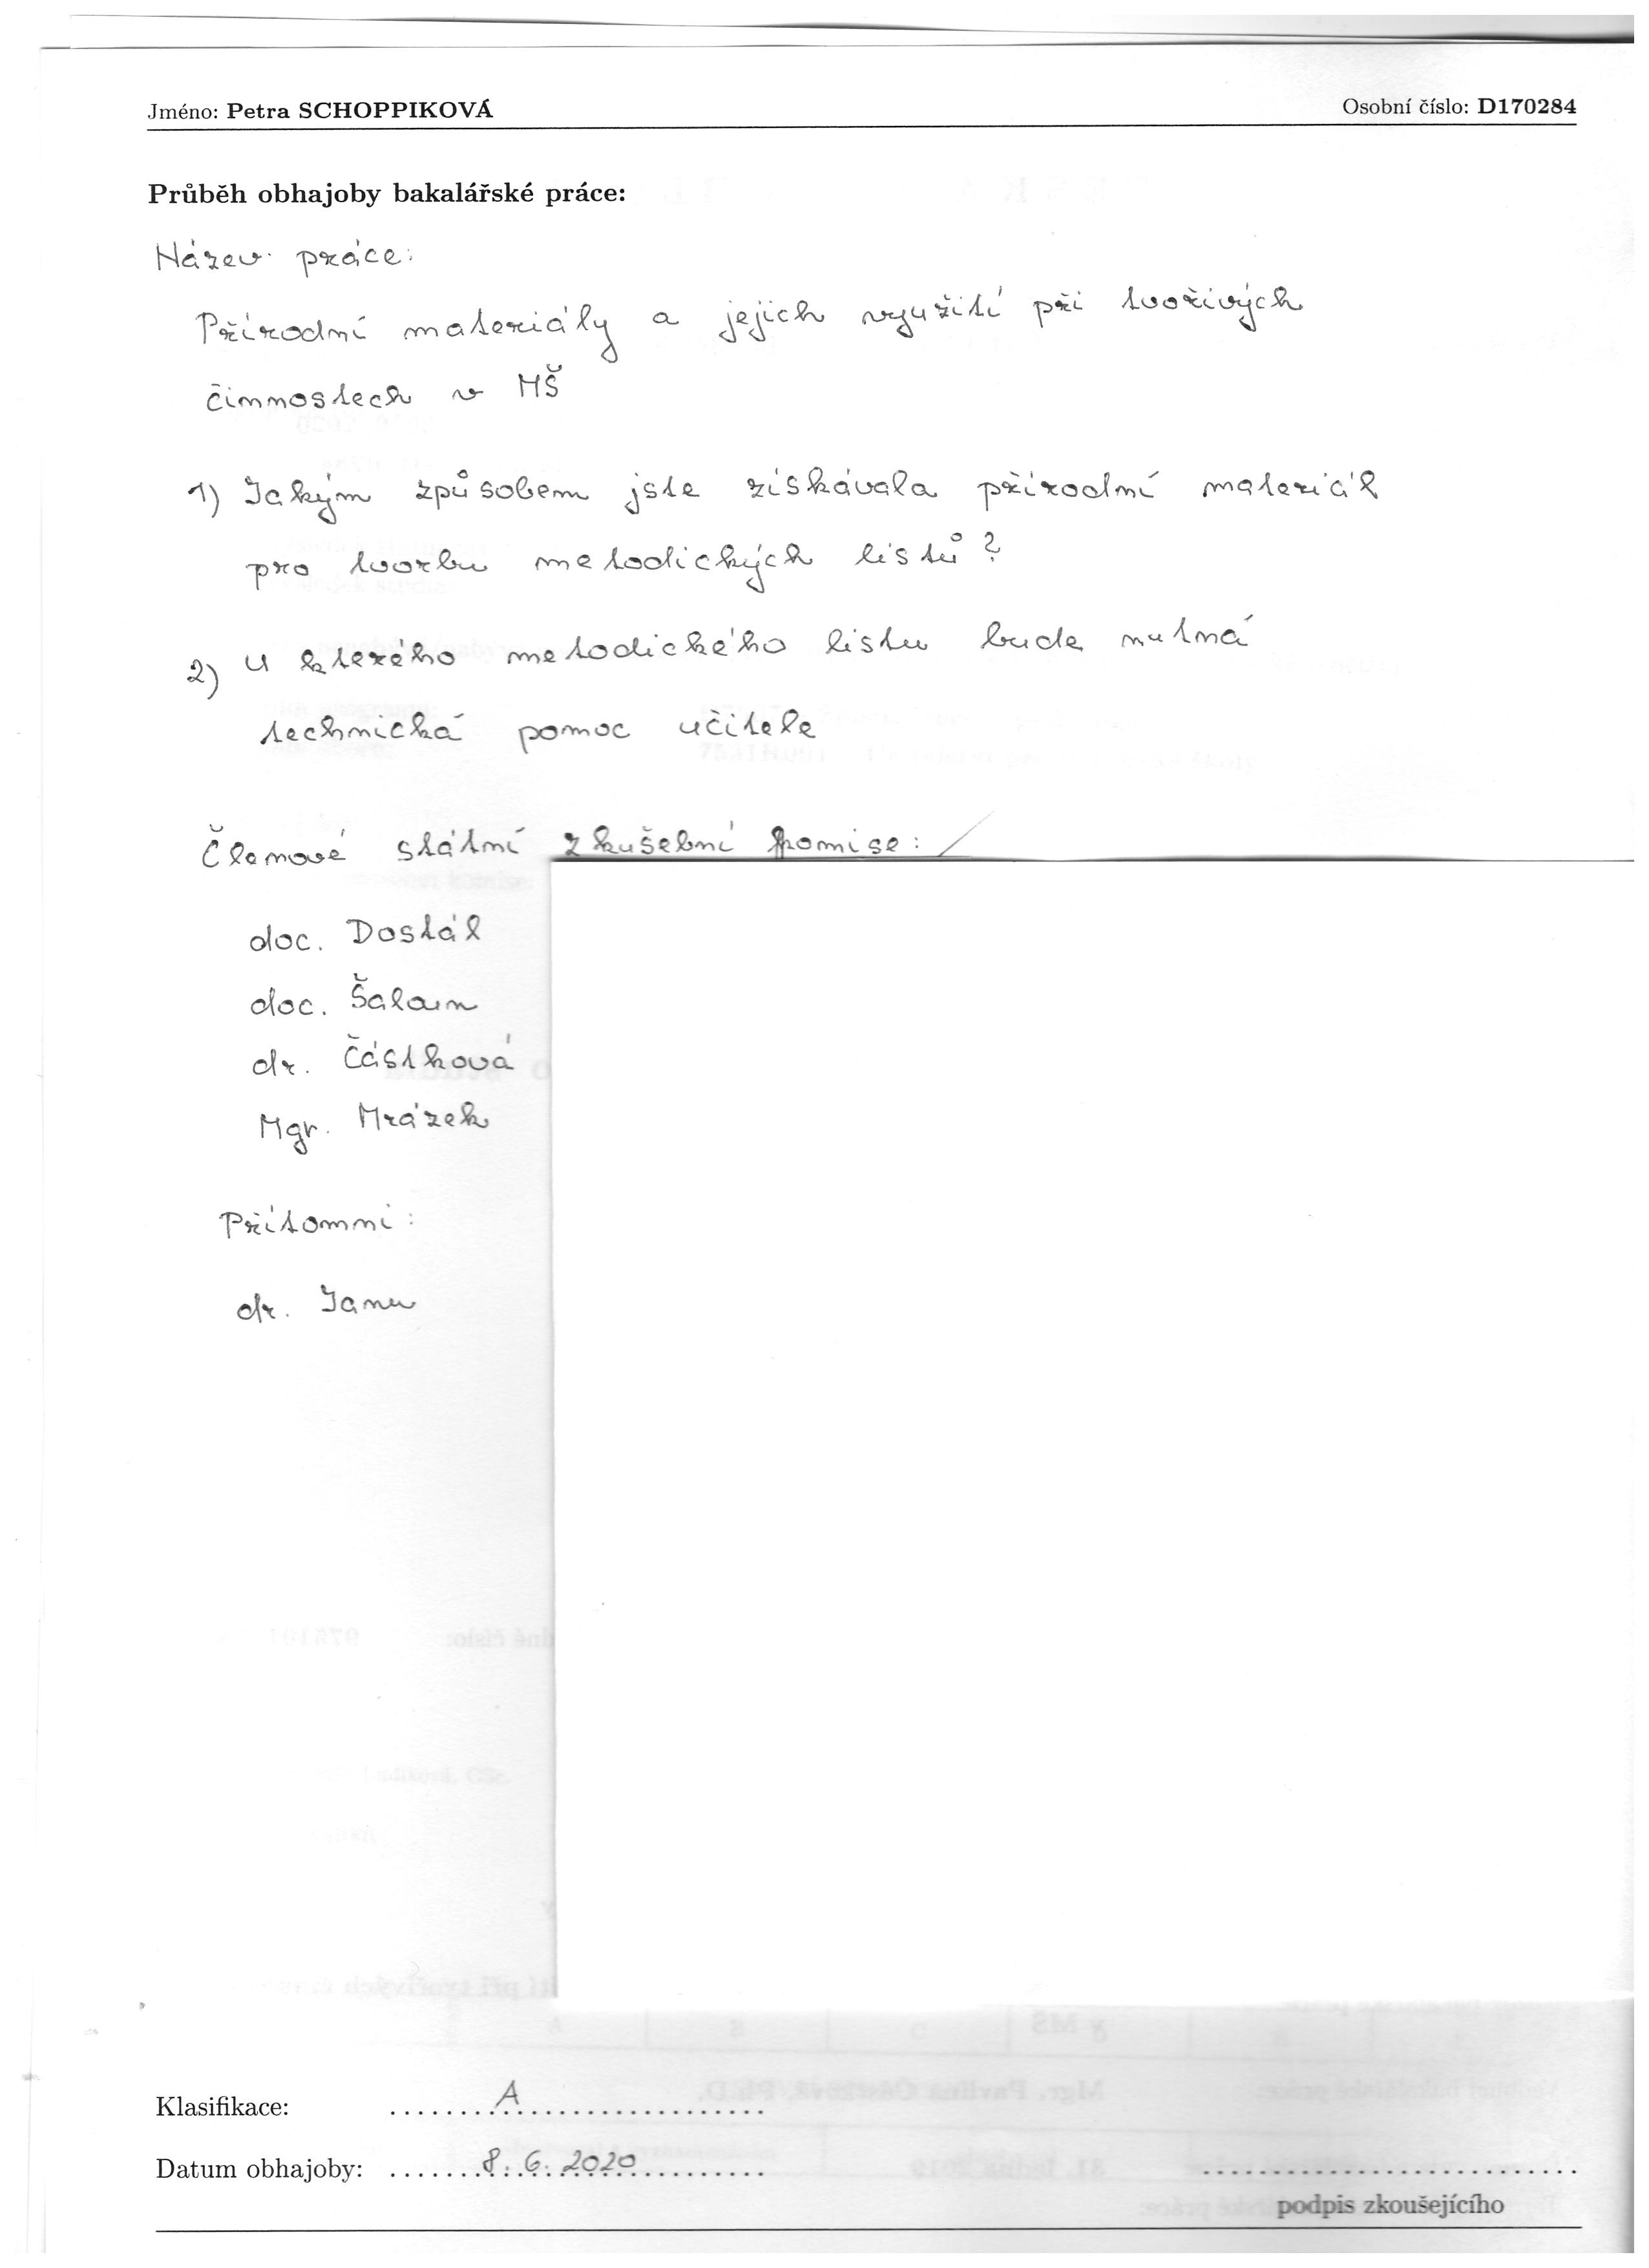 Jméno: Petra SCHOPPIKOVÁ Osobní číslo: D170284
Průběh obhajoby bakalářské práce:
Název práce:
Přírodní materiály a jejich využití při tvořivých
činnostech v MŠ
1) Jakým způsobem jste získávala přírodní materiál
pro tvorbu metodických listů?
2) U kterého metodického listu bude nutná
technická pomoc učitele
Členové státní zkušební komise:
doc. Dostál
doc. Šaloun
dr. Částková
Mgr. Mrázek
Přítomni:
dr. Janu
Klasifikace: A
Datum obhajoby: 8. 6. 2020
podpis zkoušejícího